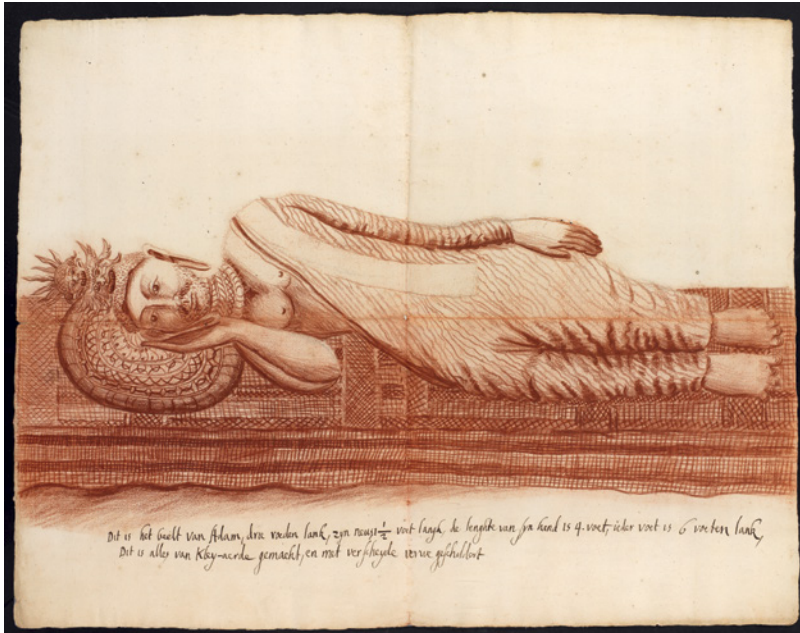 Dit is het beelt van Adam, drie roeden lank, zyn neus 1½ voet langh, de lenghte van syn hand is 4. voet, ieder voet is 6 voeten lank,
Dit is alles van Kley-aerde gemaekt, en met verscheyde verwe geschildert